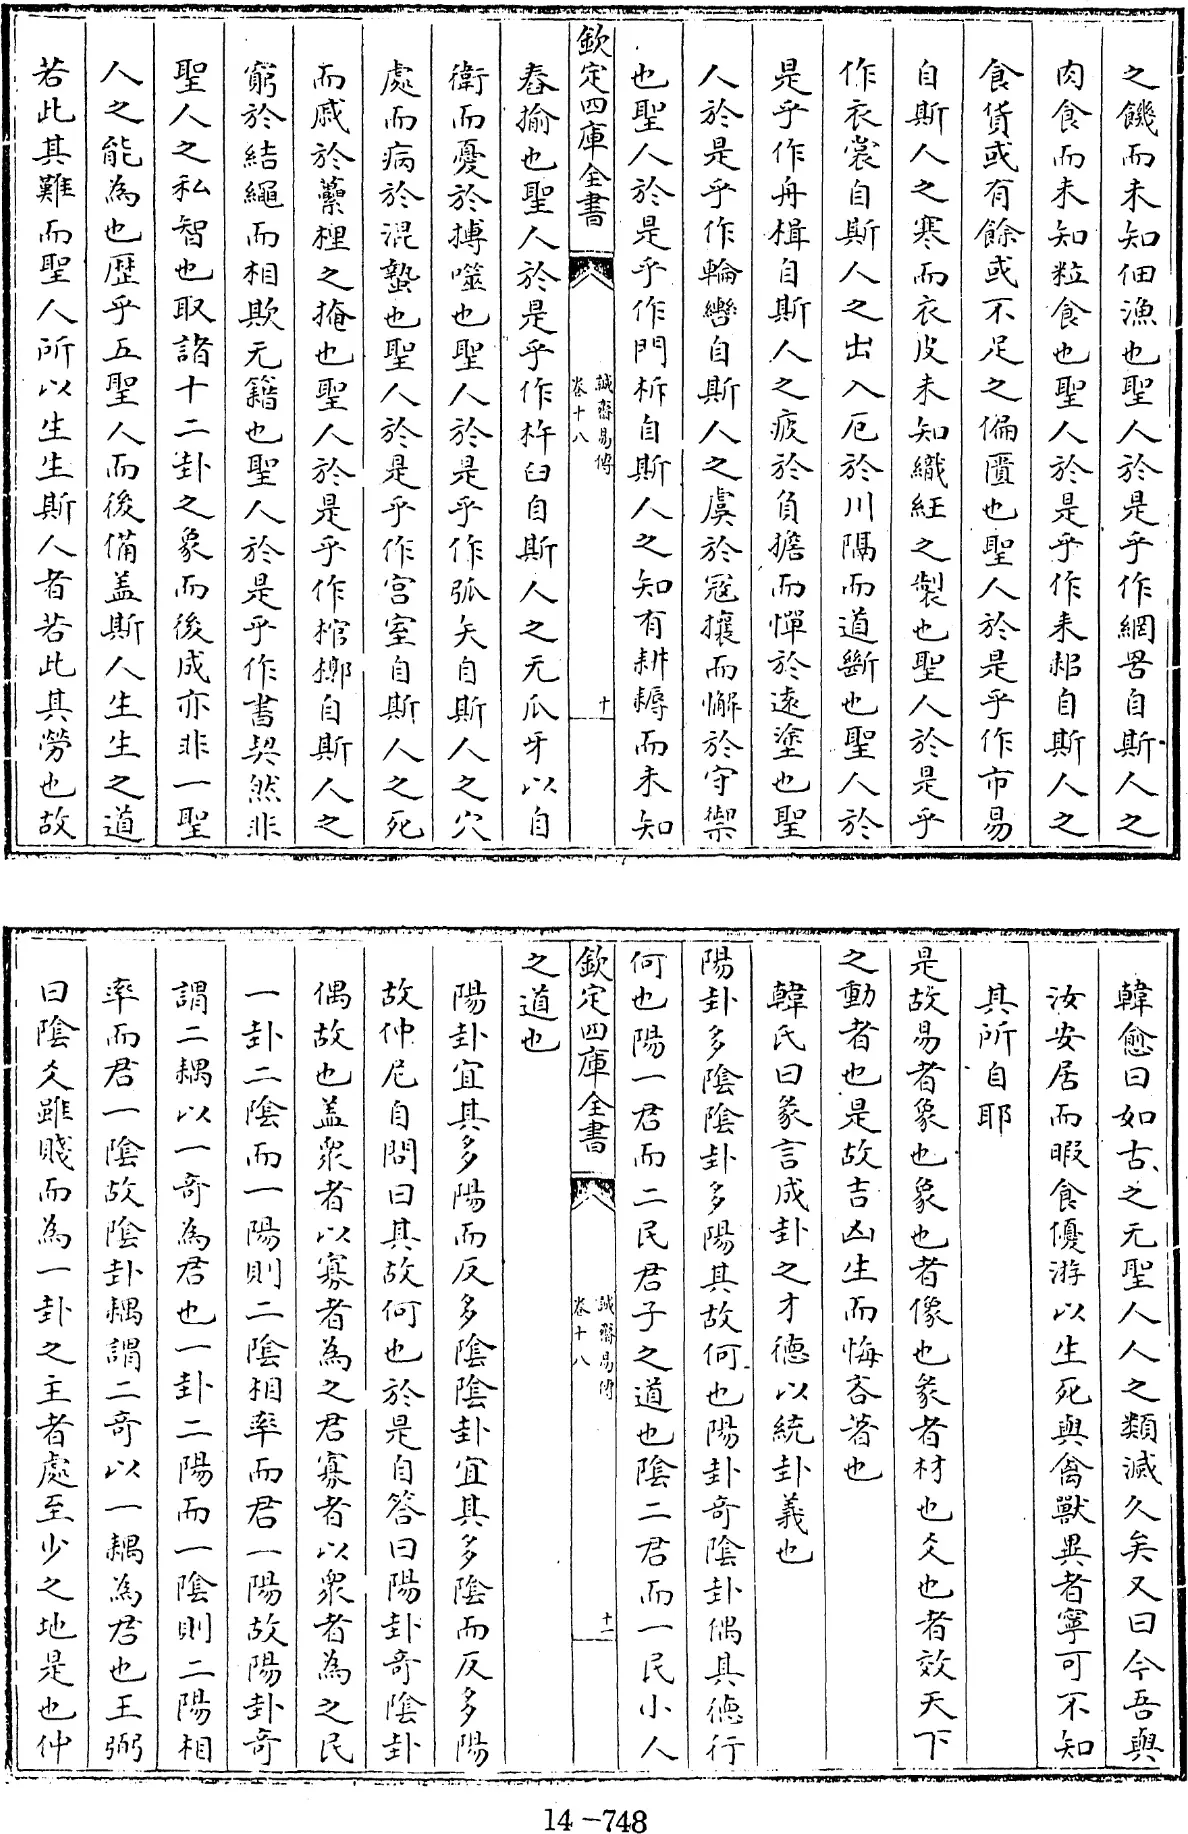 之饑而未知佃漁也聖人於是乎作網罟自斯人之
肉食而未知粒食也聖人於是乎作耒耜自斯人之
食貨或有餘或不足之偏匱也聖人於是乎作市易
自斯人之寒而衣皮未知織紝之製也聖人於是乎
作衣裳自斯人之出入厄於川隔而道斷也聖人於
是乎作舟楫自斯人之疲於負擔而憚於逺塗也聖
人於是乎作輪轡自斯人之虞於冦攘而懈於守禦
也聖人於是乎作門柝自斯人之知有耕耨而未知
欽定四庫全書
誠齋易傳
卷十八
十
舂揄也聖人於是乎作杵臼自斯人之无爪牙以自
衛而憂於搏噬也聖人於是乎作弧矢自斯人之穴
處而病於混蟄也聖人於是乎作宫室自斯人之死
而戚於虆梩之掩也聖人於是乎作棺槨自斯人之
窮於結繩而相欺无籍也聖人於是乎作書契然非
聖人之私智也取諸十二卦之象而後成亦非一聖
人之能為也歴乎五聖人而後備盖斯人生生之道
若此其難而聖人所以生生斯人者若此其勞也故
韓愈曰如古之无聖人人之類滅久矣又曰今吾與
汝安居而暇食優游以生死與禽獸異者寧可不知
其所自耶
是故易者象也象也者像也彖者材也爻也者效天下
之動者也是故吉凶生而悔吝著也
韓氏曰彖言成卦之才德以統卦義也
陽卦多陰陰卦多陽其故何也陽卦奇陰卦偶其德行
何也陽一君而二民君子之道也陰二君而一民小人
欽定四庫全書
誠齋易傳
卷十八
十一
之道也
陽卦宜其多陽而反多陰陰卦宜其多陰而反多陽
故仲尼自問曰其故何也於是自答曰陽卦奇陰卦
偶故也盖衆者以寡者為之君寡者以衆者為之民
一卦二陰而一陽則二陰相率而君一陽故陽卦奇
謂二耦以一奇為君也一卦二陽而一陰則二陽相
率而君一陰故陰卦耦謂二奇以一耦為君也王弼
曰陰爻雖賤而為一卦之主者處至少之地是也仲
14-748